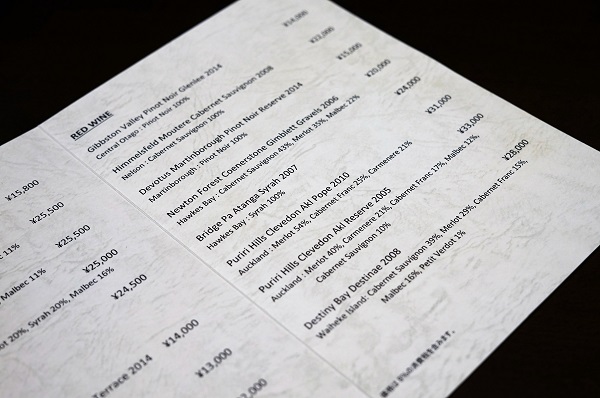 ¥15,800
¥25,500
11%
¥25,500
Malbec 11%
¥25,000
20%, Syrah 20%, Malbec 16%
¥24,500
¥14,000
Terrace 2014
¥13,000
RED WINE
Gibbston Valley Pinot Noir Glenlee 2014 ¥14,000
Central Otago : Pinot Noir 100%
Himmelsfeld Moutere Cabernet Sauvignon 2008 ¥22,000
Nelson : Cabernet Sauvignon 100%
Devotus Martinborough Pinot Noir Reserve 2014 ¥15,000
Martinborough : Pinot Noir 100%
Newton Forest Coenerstone Gimblett Gravels 2006 ¥20,000
Hawkes Bay : Cabernet Sauvignon 43%, Merlot 35%, Malbec 22%
Bridge Pa Atanga Syrah 2007 ¥24,000
Hawkes Bay : Syrah 100%
Puriri Hills Clevedon Akl Pope 2010 ¥31,000
Auckland : Merlot 54%, Cabernet Franc 25%, Carmenere 21%
Puriri Hills Clevedon Akl Reserve 2005 ¥33,000
Auckland : Merlot 40%, Carmenere 21%, Cabernet Franc 17%, Malbec 12%,
Cabernet Sauvignon 10%
Destiny Bay Destinae 2008 ¥28,000
Waiheke Island: Cabernet Sauvignon 39%, Merlot 29%, Cabernet Franc 15%,
Malbec 16%, Petit Verdot 1%